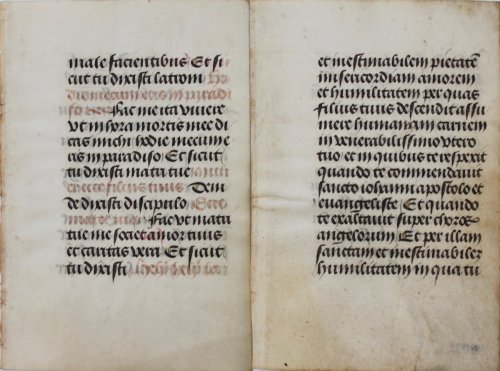 male facientibus Et si
cut tu dixisti latroni
hodie mecum eris in paradi
so Fac me ita vivere
vt in hora mortis mee di
cas michi hodie mecum e
ris in paradiso Et sicut
tu dixisti matri tue
ecce filius tuus Dein
de dixisti discipulo Ecce
mater tua Fac vt matri
tue me societ amor tuus
et caritas vera Et sicut
tu dixisti hely hely
et inestimabilem pietatem
misericordiam amorem
et humilitatem per quas
filius tuus descendit assu
mere humanam carnem
in venerabilissimo vtero
tuo et in quibus te respexit
quando te commendavit
sancto iohanni apostolo et
euangeliste Et quando
te exaltauit super choros
angelorum Et per illam
sanctam et inestimabilem
humilitatem in qua tu